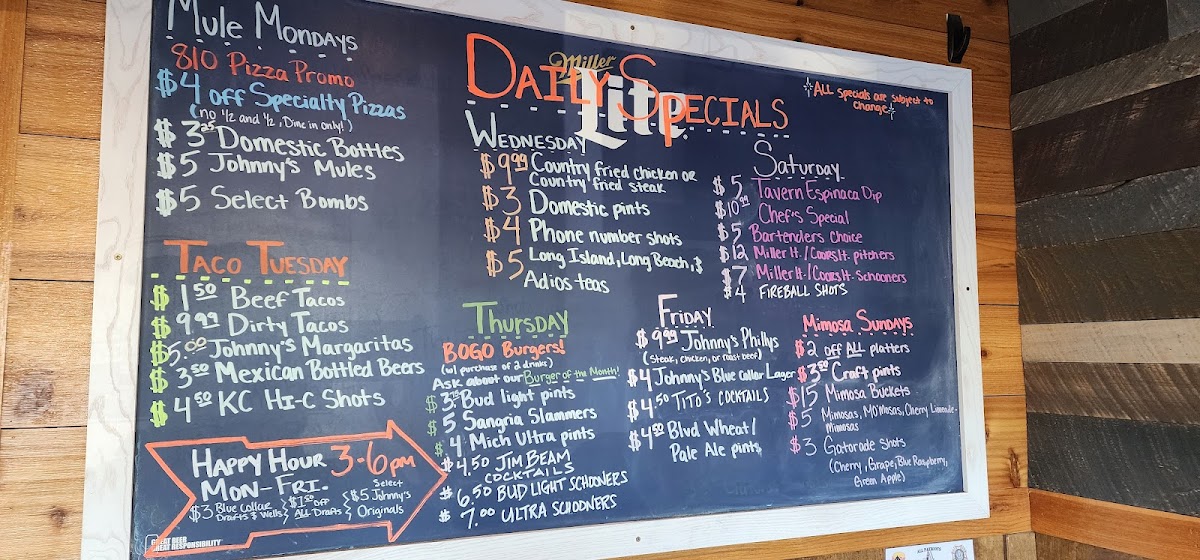 Mule Mondays
810 Pizza Promo
$4 off Specialty Pizzas
(no 1/2 and 1/2, Dine in only!)
$3.25 Domestic Bottles
$5 Johnny's Mules
$5 Select Bombs
Taco Tuesday
$1.50 Beef Tacos
$9.99 Dirty Tacos
$5.00 Johnny's Margaritas
$3.50 Mexican Bottled Beers
$4.50 KC Hi-C Shots
Happy Hour 3-6pm
Mon-Fri.
$3 Blue Collar Drafts & Wells
$1.50 off ALL Drafts
$5 Select Johnny's Originals
GREAT BEER
GREAT RESPONSIBILITY
Miller
Lite
Daily Specials
ALL specials are subject to
change
Wednesday
$9.99 Country fried chicken or
Country fried steak
$3 Domestic pints
$4 Phone number shots
$5 Long Island, Long Beach, &
Adios teas
Thursday
BOGO Burgers!
(w/ purchase of 2 drinks)
Ask about our Burger of the Month!
Bud light pints
$5 Sangria Slammers
$4 Mich Ultra pints
$4.50 Jim Beam
Cocktails
$6.50 Bud Light Schooners
$7.00 Ultra Schooners
Friday
$9.99 Johnny's Phillys
(Steak, chicken, or roast beef)
$4 Johnny's Blue Collar Lager
$4.50 Tito's Cocktails
$4.50 Blvd Wheat/
Pale Ale pints
Saturday
$5 Tavern Espinaca Dip
$10.99 Chef's Special
$5 Bartenders Choice
$12 Miller lt./Coors lt. pitchers
$7 Miller lt./Coors lt. Schooners
$4 Fireball Shots
Mimosa Sundays
$2 off ALL platters
$3.50 Craft pints
$15 Mimosa Buckets
$5 Mimosas, MO'Mosas, Cherry Limeade-
Mimosas
$3 Gatorade Shots
(Cherry, Grape, Blue Raspberry,
Green Apple)